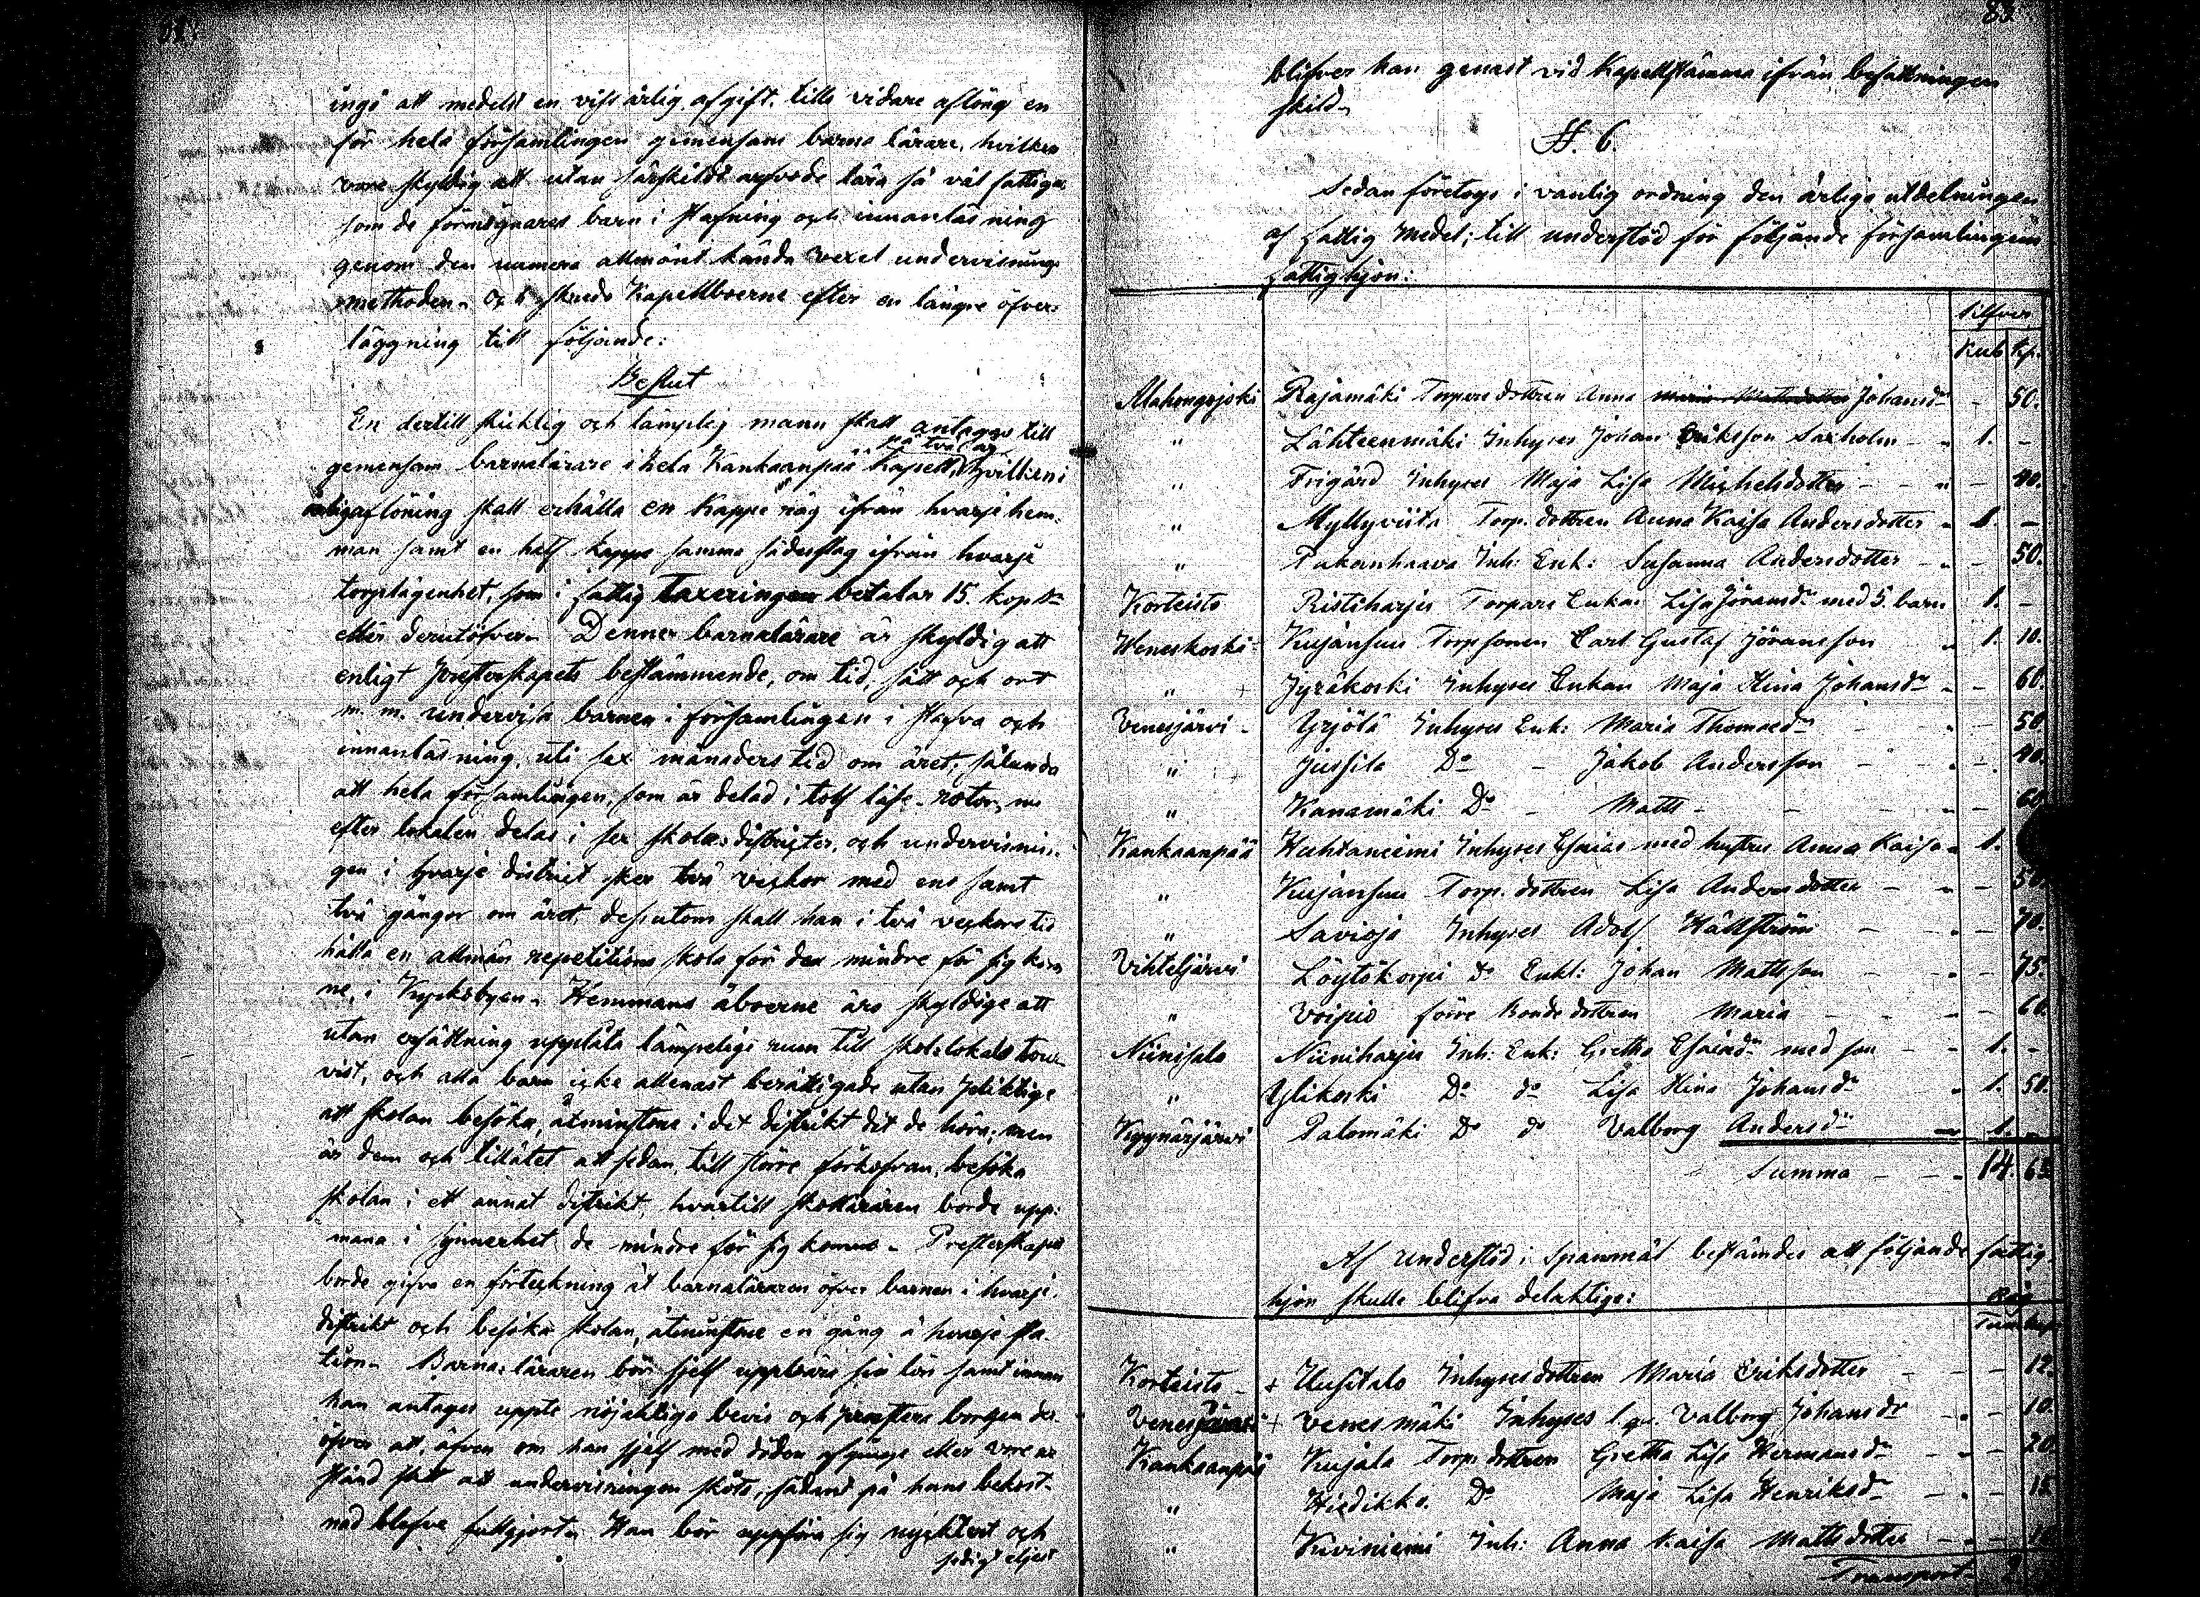 ingå att medelst en viss årlig afgift, tills vidare aflöna en
för hela församlingen gemensam barna lärare, hvilken
vore skyldig att utan särskildt arfvode lära så väl fattiga
som de förmögnares barn i stafning och innanläsning
genom den numera allmänt kända vexel undervisnings
methoden. Och skredo Kapellboerne efter en längre öfver-
läggning till följande:
Beslut
En dertill skicklig och lämplig mann skall antagas till
på två år
gemensam barnalärare i hela Kankaanpää Kapell, hvilken i
årlig aflöning skall erhålla en Kappe råg ifrån hvarje hem-
man samt en half kappe samma sädesslag ifrån hvarje
torplägenhet, som i fattig taxeringen betalar 15. kop. Sr
eller derutöfver. Denne barnalärare är skyldig att
enligt Presterskapets bestämmande, om tid, sätt och ort
m. m. undervisa barnen i församlingen i stafva och
innanläsning, uti sex månaders tid om året, sålunda
att hela församlingen, som är delad i tolf läse-rotor, nu
efter lokalen delas i sex skole-distrikter, och undervisnin-
gen i hvarje distrikt sker två veckor med ens samt
två gångor om året, dessutom skall han i två veckors tid
hålla en allmän repetitions skola för de mindre för sig kom
ne, i Kyrkobyen. Hemmans åboerne äro skyldige att
utan ersättning upplåta lämpelige rum till skolelokals
vist, och alla barn icke allenast berättigade utan pliktige
att skolan besöka, åtminstone i det distrikt dit de höra; men
är dem och tillåtet att sedan, till större förkofran, besöka
skolan i ett annat distrikt, hvartill skolläraren borde upp-
mana i synnerhet de mindre för sig komne. Presterskapet
borde gifva en förteckning åt barnaläraren öfver barnen i hvarje
distrikt och besöka skolan, åtminstone en gång å hvarje sta-
tion. Barna-läraren bör sjelf uppbära sin lön samt innan
han antages uppte nöjaktiga bevis och prestera borgen der
öfver att, äfven om han sjelf med döden afginge eller vore ur
stånd satt att undervisningen sköta, sådant på hans bekost-
nad blefve fullgjort. Han bör uppföra sig nycktert och
sedigt eljest
83.
blifver han genast vid Kapellstämma ifrån befattningen
skild.
§. 6.
Sedan företogs i vanlig ordning den årliga utdelningen
af fattig medel; till understöd för följande församlingens
fattighjon:
Silfver
Rub. kp.
Alahongojoki Rajamäki Torpare dottren Anna Maria Mattsdotter Johansdr - 50.
" Lähteenmäki Inhyses Johan Eriksson Saxholm - 1. -
" Frigård Inhyses Maja Lisa Michelsdotter - - 40.
" Myllyviita Torp. dottren Anna Kaisa Andersdotter 1. -
" Pukanhaava Inh: Enk: Susanna Andersdotter - 50.
Korteisto Ristiharju Torpare Enkan Lisa Jöransdr med 5. barn 1. -
Weneskoski Kujansuu Torpsonen Carl Gustaf Jöransson 1. 10.
" Jyräkoski Inhyses Enkan Maja Stina Johansdr - 60.
Venesjärvi - Yrjölä Inhyses Enk: Maria Thomædr - 50
" Jussila Do - Jakob Andersson - 40.
" Kanamäki Do - Matts - - 60.
Kankaanpää Huhtaniemi Inhyses Esaias med hustru Anna Kaisa 1.
" Kujansuu Torp. dottren Lisa Andersdotter - 50
" Savioja Inhyses Adolf Hällström - 70.
Vihteljärvi Löytökorpi Do Enkl: Johan Mattsson - 75.
" Voipio förre Bonde dottren Maria - 60.
Niinisalo Niiniharju Inh: Enk: Gretha Esaiædr med son - 1. -
" Ylikoski Do do Lisa Stina Johansdr 1. 50.
Kyynärjärvi Palomäki Do do Valborg Andersdr 1. -
Summa - 14. 65
Af understöd i Spannmål bestämdes att följande fattig-
hjon skulle blifva delaktige:
Råg
Tun. kap.
Korteisto - + Uusitalo Inhyses dottren Maria Eriksdotter - 12.
Venesjärvi + Venesmäki Inhyses Valborg Johansdr - 10.
Kankaanpää Kujala Torp. dottren Gretha Lisa Hermansdr - 20.
" Hiedikko Do Maja Lisa Henriksdr - 15
" Kiviniemi Inh: Anna Kaisa Mattsdotter
Transport - 2